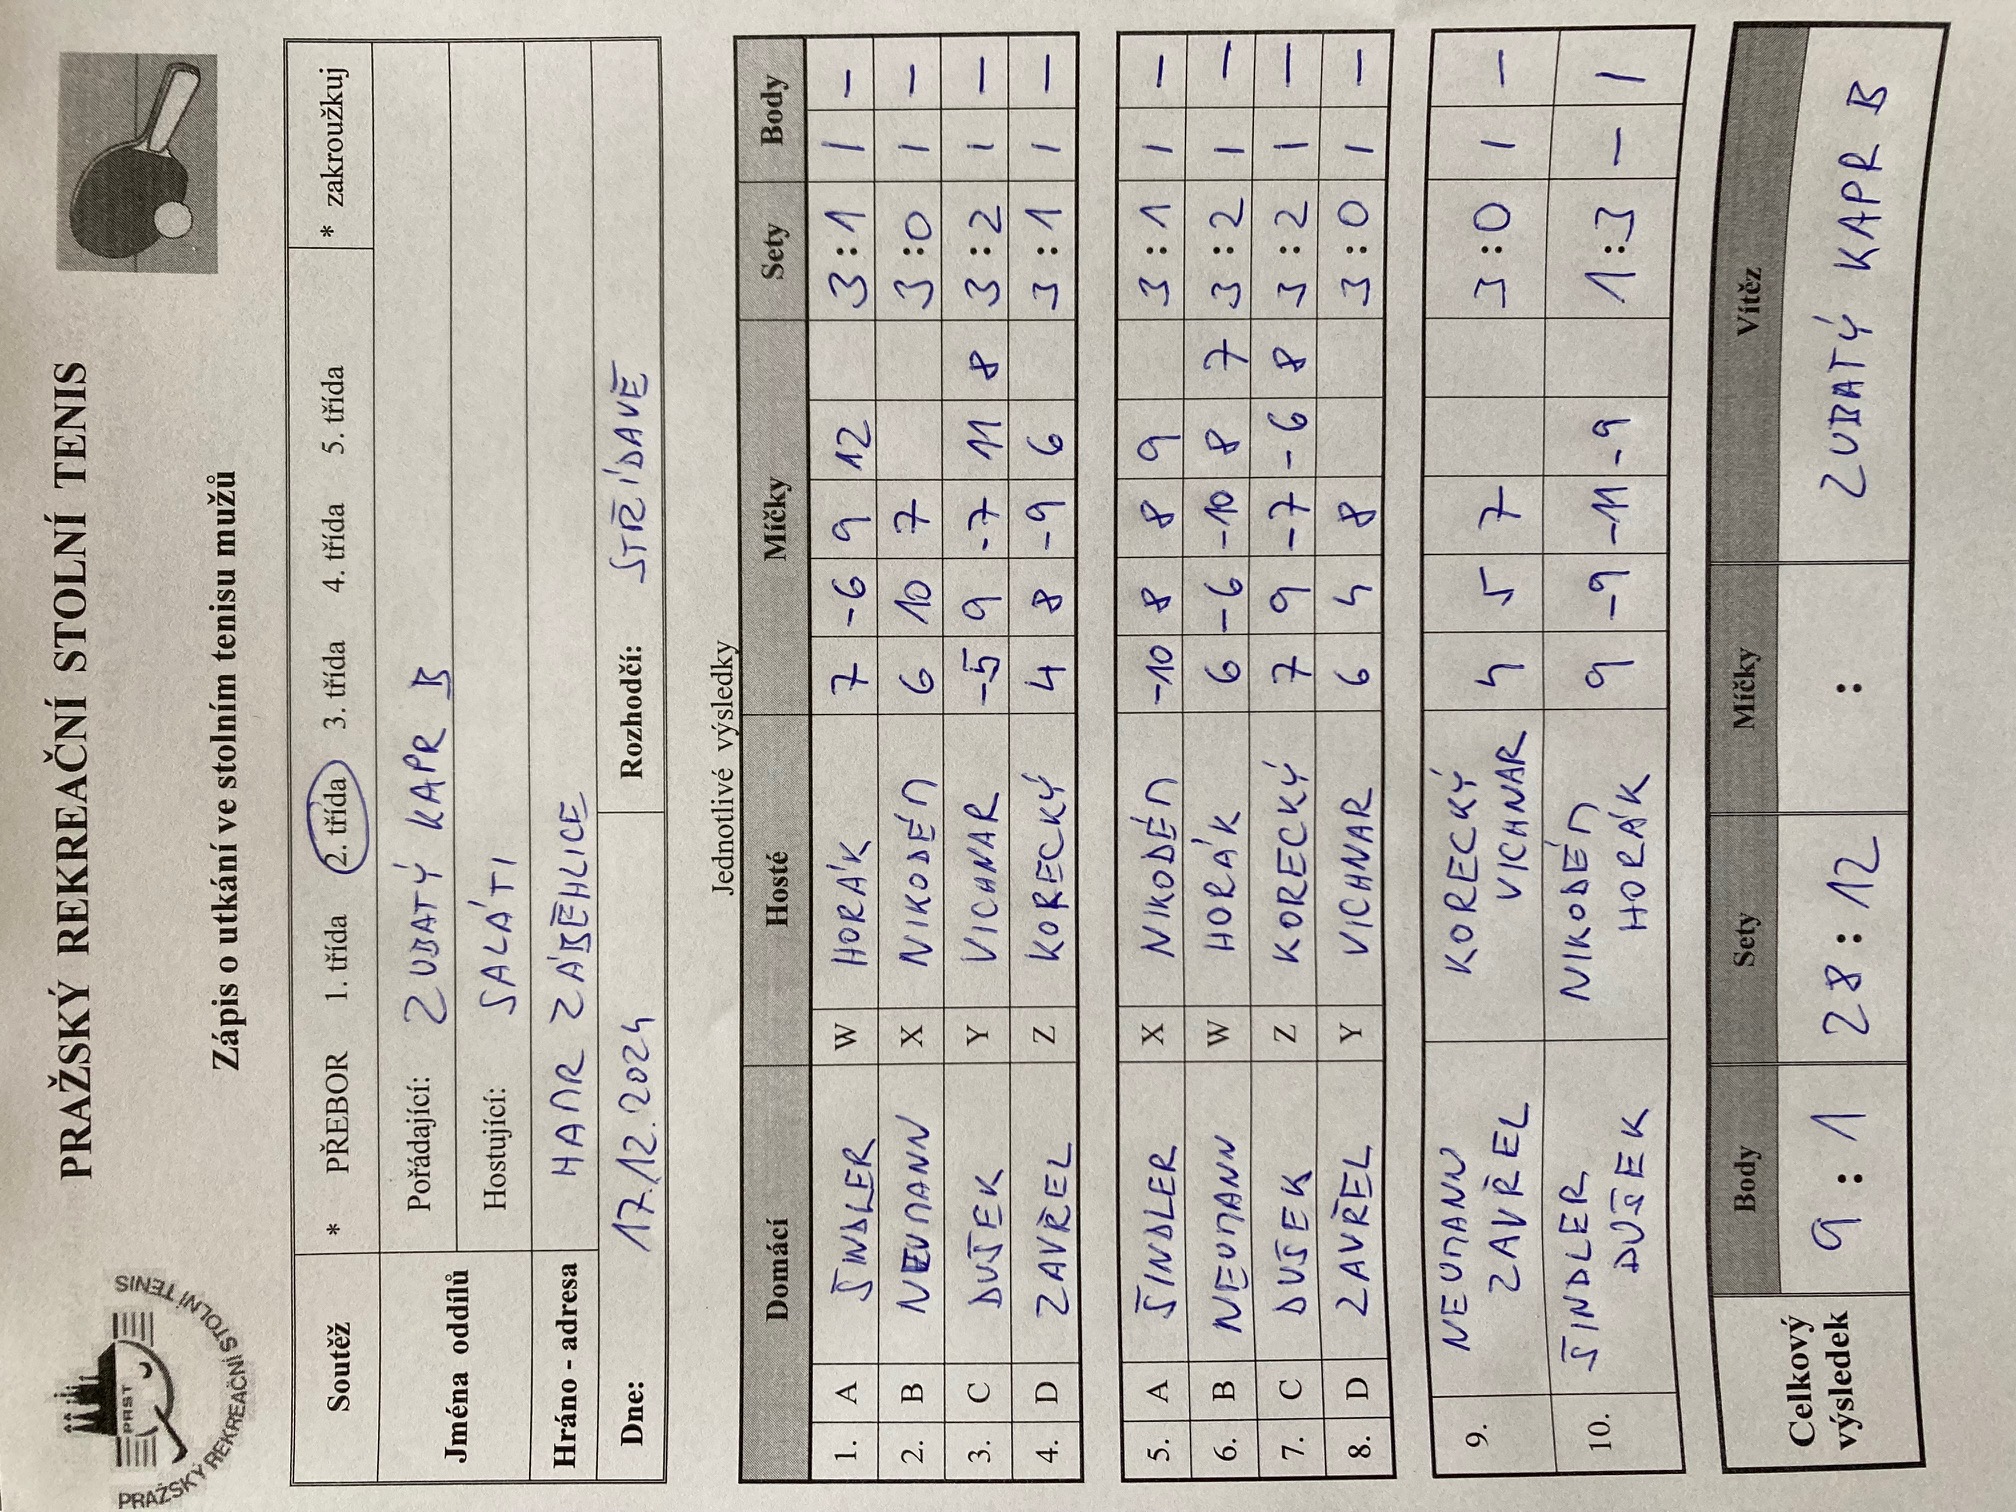 PRAŽSKÝ REKREAČNÍ STOLNÍ TENIS
PRST
PRAŽSKÝ REKREAČNÍ STOLNÍ TENIS
Zápis o utkání ve stolním tenisu mužů
Soutěž * PŘEBOR 1. třída 2. třída 3. třída 4. třída 5. třída * zakroužkuj
Jména oddílů Pořádající: ZUBATÝ KAPR B
Hostující: SALÁTI
Hráno - adresa HAMR ZÁBĚHLICE
Dne: 17.12.2024 Rozhodčí: STŘÍDAVĚ
Jednotlivé výsledky
Domácí Hosté Míčky Sety Body
1. A ŠINDLER W HORÁK 7 -6 9 12 3:1 1 –
2. B NEUMANN X NIKODÉM 6 10 7 3:0 1 –
3. C DUŠEK Y VICHNAR -5 9 -7 11 8 3:2 1 –
4. D ZAVŘEL Z KORECKÝ 4 8 -9 6 3:1 1 –
5. A ŠINDLER X NIKODÉM -10 8 8 9 3:1 1 –
6. B NEUMANN W HORÁK 6 -6 -10 8 7 3:2 1 –
7. C DUŠEK Z KORECKÝ 7 9 -7 -6 8 3:2 1 –
8. D ZAVŘEL Y VICHNAR 6 4 8 3:0 1 –
9. NEUMANN ZAVŘEL KORECKÝ VICHNAR 4 5 7 3:0 1 –
10. ŠINDLER DUŠEK NIKODÉM HORÁK 9 -9 -11 -9 1:3 – 1
Celkový výsledek Body Sety Míčky Vítěz
9 : 1 28 : 12 : ZUBATÝ KAPR B